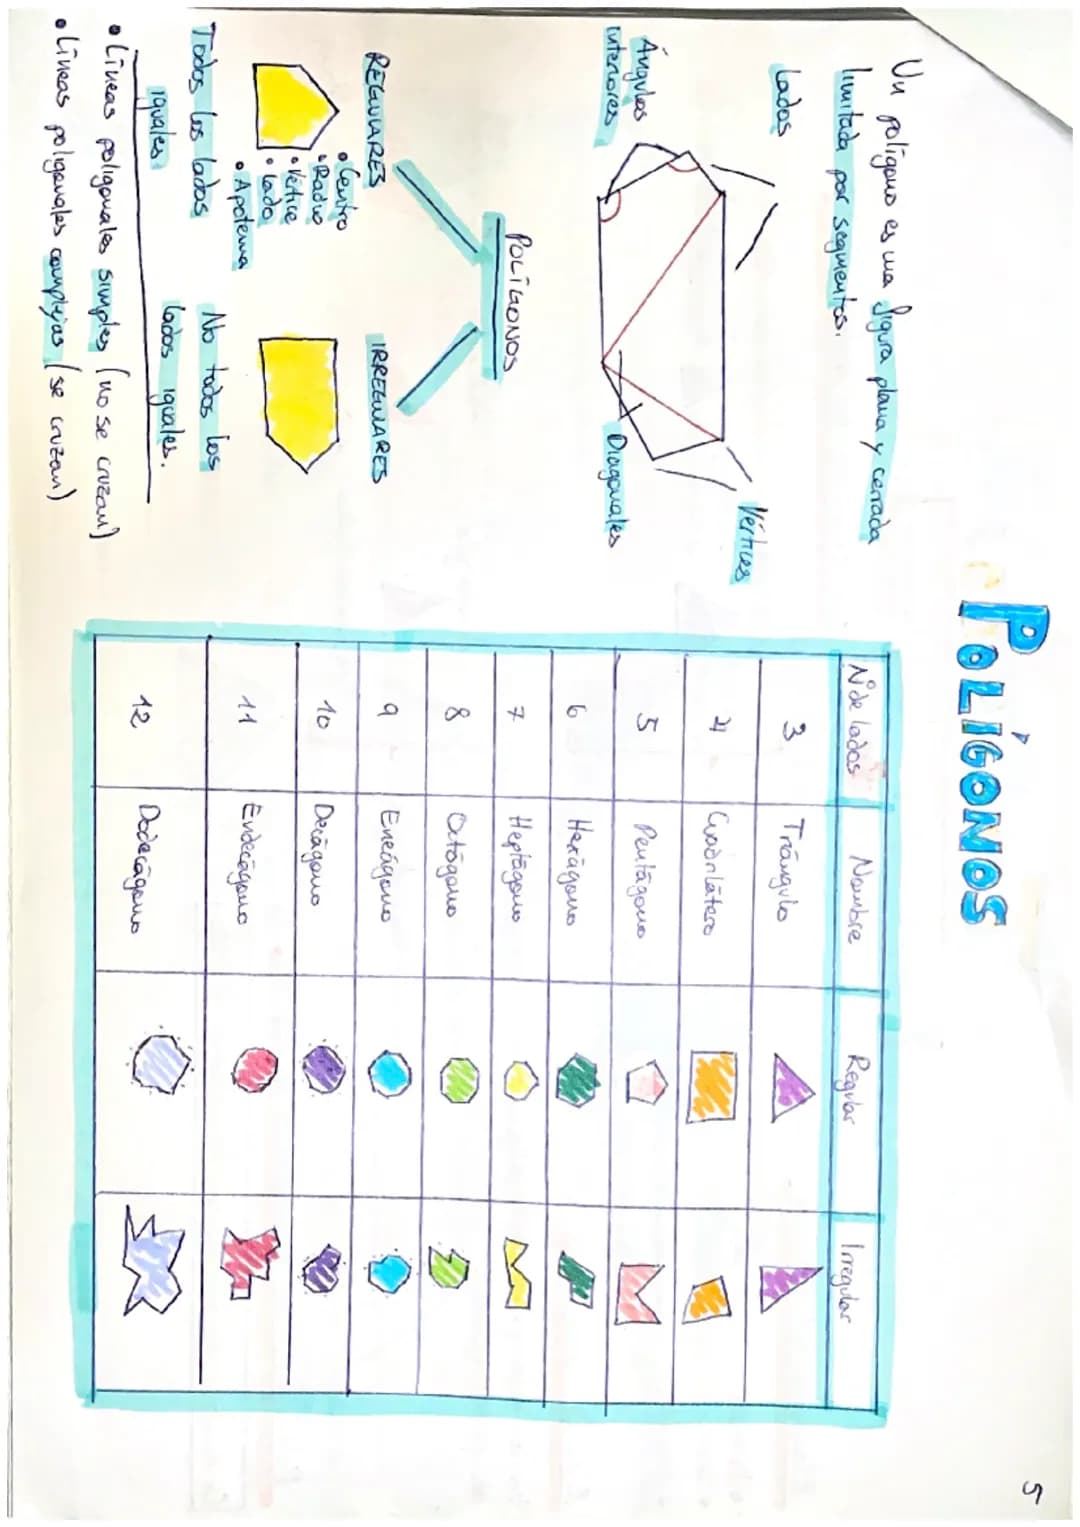 5
POLÍGONOS
Un polígono es una figura plana y cerrada
limitada por segmentos.
Lados
Vértices
Ángulos
interiores
Diagonales
POLÍGONOS
REGULARES
IRREGULARES
• Centro
• Radio
• Vértice
• Lado
• Apotema
Todos los lados
iguales
No todos los
lados iguales.
• Líneas poligonales simples (no se cruzan)
• Líneas poligonales complejas (se cruzan)
Nº de lados Nombre Regular Irregular
3 Triángulo
4 Cuadrilátero
5 Pentágono
6 Hexágono
7 Heptágono
8 Octógono
9 Eneágono
10 Decágono
11 Endecágono
12 Dodecágono